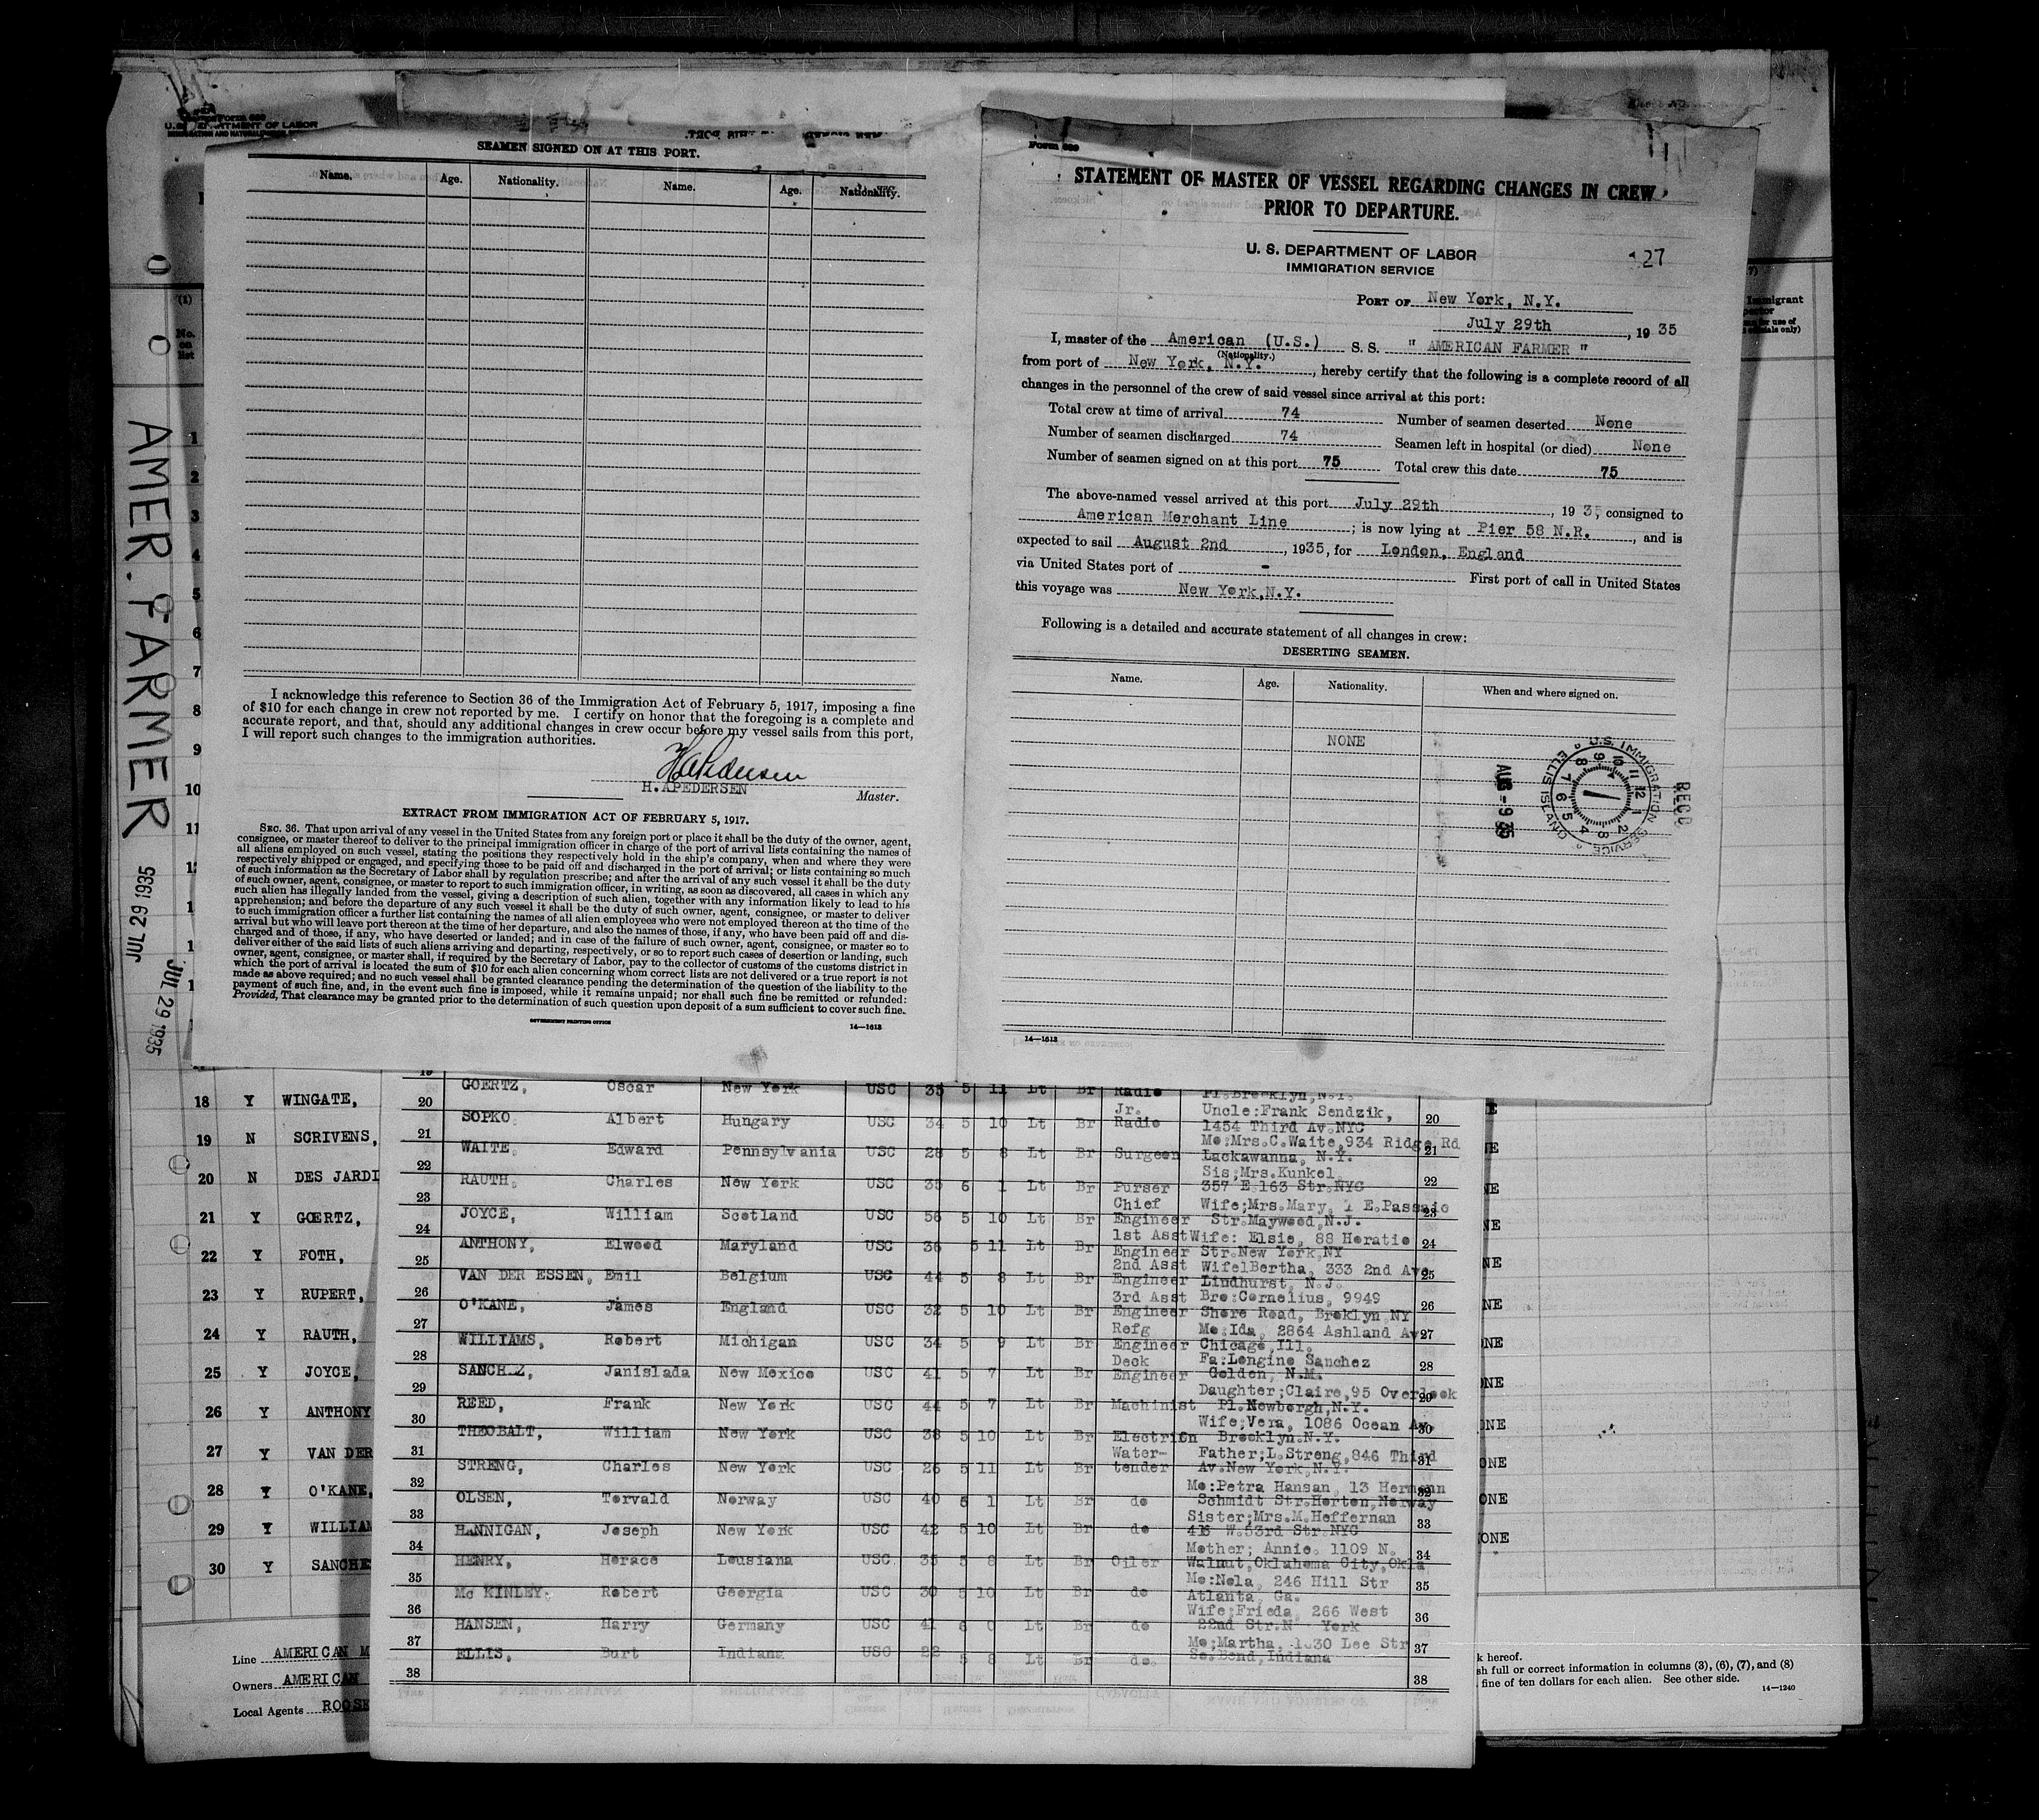 SEAMEN SIGNED ON AT THIS PORT.
Name. Age. Nationality. Name. Age. Nationality.
I acknowledge this reference to Section 36 of the Immigration Act of February 5, 1917, imposing a fine
of $10 for each change in crew not reported by me. I certify on honor that the foregoing is a complete and
accurate report, and that, should any additional changes in crew occur before my vessel sails from this port,
I will report such changes to the immigration authorities.
H.A.PEDERSEN
Master.
EXTRACT FROM IMMIGRATION ACT OF FEBRUARY 5, 1917.
SEC. 36. That upon arrival of any vessel in the United States from any foreign port or place it shall be the duty of the owner, agent,
consignee, or master thereof to deliver to the principal immigration officer in charge of the port of arrival lists containing the names of
all aliens employed on such vessel, stating the positions they respectively hold in the ship's company, when and where they were
respectively shipped or engaged, and specifying those to be paid off and discharged in the port of arrival; or lists containing so much
of such information as the Secretary of Labor shall by regulation prescribe; and after the arrival of any such vessel it shall be the duty
of such owner, agent, consignee, or master to report to such immigration officer, in writing, as soon as discovered, all cases in which any
such alien has illegally landed from the vessel, giving a description of such alien, together with any information likely to lead to his
apprehension; and before the departure of any such vessel it shall be the duty of such owner, agent, consignee, or master to deliver
to such immigration officer a further list containing the names of all alien employees who were not employed thereon at the time of the
arrival but who will leave port thereon at the time of her departure, and also the names of those, if any, who have been paid off and dis-
charged and of those, if any, who have deserted or landed; and in case of the failure of such owner, agent, consignee, or master so to
deliver either of the said lists of such aliens arriving and departing, respectively, or so to report such cases of desertion or landing, such
owner, agent, consignee, or master shall, if required by the Secretary of Labor, pay to the collector of customs of the customs district in
which the port of arrival is located the sum of $10 for each alien concerning whom correct lists are not delivered or a true report is not
made as above required; and no such vessel shall be granted clearance pending the determination of the question of the liability to the
payment of such fine, and, in the event such fine is imposed, while it remains unpaid; nor shall such fine be remitted or refunded:
Provided, That clearance may be granted prior to the determination of such question upon deposit of a sum sufficient to cover such fine.
GOVERNMENT PRINTING OFFICE 14—1613
Form 689
STATEMENT OF MASTER OF VESSEL REGARDING CHANGES IN CREW
PRIOR TO DEPARTURE.
U. S. DEPARTMENT OF LABOR
IMMIGRATION SERVICE
127
PORT OF New York, N.Y.
July 29th, 1935
I, master of the American (U.S.) S. S. " AMERICAN FARMER "
(Nationality.)
from port of New York, N.Y., hereby certify that the following is a complete record of all
changes in the personnel of the crew of said vessel since arrival at this port:
Total crew at time of arrival 74 Number of seamen deserted None
Number of seamen discharged 74 Seamen left in hospital (or died) None
Number of seamen signed on at this port 75 Total crew this date 75
The above-named vessel arrived at this port July 29th, 1935, consigned to
American Merchant Line; is now lying at Pier 58 N.R., and is
expected to sail August 2nd, 1935, for London, England
via United States port of - First port of call in United States
this voyage was New York,N.Y.
Following is a detailed and accurate statement of all changes in crew:
DESERTING SEAMEN.
Name. Age. Nationality. When and where signed on.
NONE
REC'D
AUG -9 35
U.S. IMMIGRATION SERVICE
ELLIS ISLAND
14—1613
U.S. DEPARTMENT OF LABOR
(1)
No.
on
list
AMER. FARMER
JUL 29 1935
JUL 29 1935
1
2
3
4
5
6
7
8
9
10
11
18 Y WINGATE,
19 N SCRIVENS,
20 N DES JARDI
21 Y GOERTZ,
22 Y FOTH,
23 Y RUPERT,
24 Y RAUTH,
25 Y JOYCE,
26 Y ANTHONY
27 Y VAN DER
28 Y O'KANE,
29 Y WILLIAM
30 Y SANCHE
Line AMERICAN M
Owners AMERICAN
Local Agents ROOSE
19
GOERTZ, Oscar New York USC 35 5 11 Lt Br Radio Pl.Brooklyn,N.Y.
20 Jr. Uncle:Frank Sendzik, 20
SOPKO, Albert Hungary USC 34 5 10 Lt Br Radio 1454 Third Av.NYC
21 Mo:Mrs.C.Waite,934 Ridge Rd 21
WAITE, Edward Pennsylvania USC 28 5 8 Lt Br Surgeon Lackawanna, N.Y.
22 Sis;Mrs.Kunkel, 22
RAUTH, Charles New York USC 35 6 1 Lt Br Purser 357 E.163 Str.NYC
23 Chief Wife;Mrs.Mary, 1 E.Passaic 23
JOYCE, William Scotland USC 56 5 10 Lt Br Engineer Str.Maywood,N.J.
24 1st Asst Wife: Elsie, 88 Horatio 24
ANTHONY, Elwood Maryland USC 36 5 11 Lt Br Engineer Str.New York,NY
25 2nd Asst WifelBertha, 333 2nd Ave 25
VAN DER ESSEN, Emil Belgium USC 44 5 8 Lt Br Engineer Lindhurst, N.J.
26 3rd Asst Bro:Cornelius, 9949 26
O'KANE, James England USC 32 5 10 Lt Br Engineer Shore Road, Broklyn NY
27 Refg Mo:Ida, 2864 Ashland Av 27
WILLIAMS, Robert Michigan USC 34 5 9 Lt Br Engineer Chicago,Ill.
28 Deck Fa:Longino Sanchez 28
SANCH Z, Janislada New Mexico USC 41 5 7 Lt Br Engineer Golden, N.M.
29 Daughter;Claire,95 Overlook 29
REED, Frank New York USC 44 5 7 Lt Br Machinist Pl.Newborgh,N.Y.
30 Wife;Vera, 1086 Ocean Av 30
THEOBALT, William New York USC 38 5 10 Lt Br Electrien Brooklyn.N.Y.
31 Water- Father;L.Streng,846 Third 31
STRENG, Charles New York USC 26 5 11 Lt Br tender Av.New York,N.Y.
32 Mo:Petra Hansan, 13 Hermann 32
OLSEN, Torvald Norway USC 40 6 1 Lt Br do Schmidt Str.Horten,Norway
33 Sister;Mrs.M.Heffernan 33
HANNIGAN, Joseph New York USC 42 5 10 Lt Br do 416 W.53rd Str.NYC
34 Mother; Annie. 1109 N. 34
HENRY, Horace Lousiana USC 35 5 8 Lt Br Oiler Walnut,Oklahoma City,Okla
35 Mo:Nola, 246 Hill Str 35
Mc KINLEY, Robert Georgia USC 30 5 10 Lt Br do Atlanta, Ga.
36 Wife;Frieda, 266 West 36
HANSEN, Harry Germany USC 41 6 0 Lt Br do 22nd Str.N York
37 Mo;Martha, 1030 Lee Str 37
ELLIS, Burt Indiana USC 22 5 8 Lt Br do. So.Bend,Indiana
38 38
Immigrant
k hereof.
sh full or correct information in columns (3), (6), (7), and (8)
fine of ten dollars for each alien. See other side.
14—1240